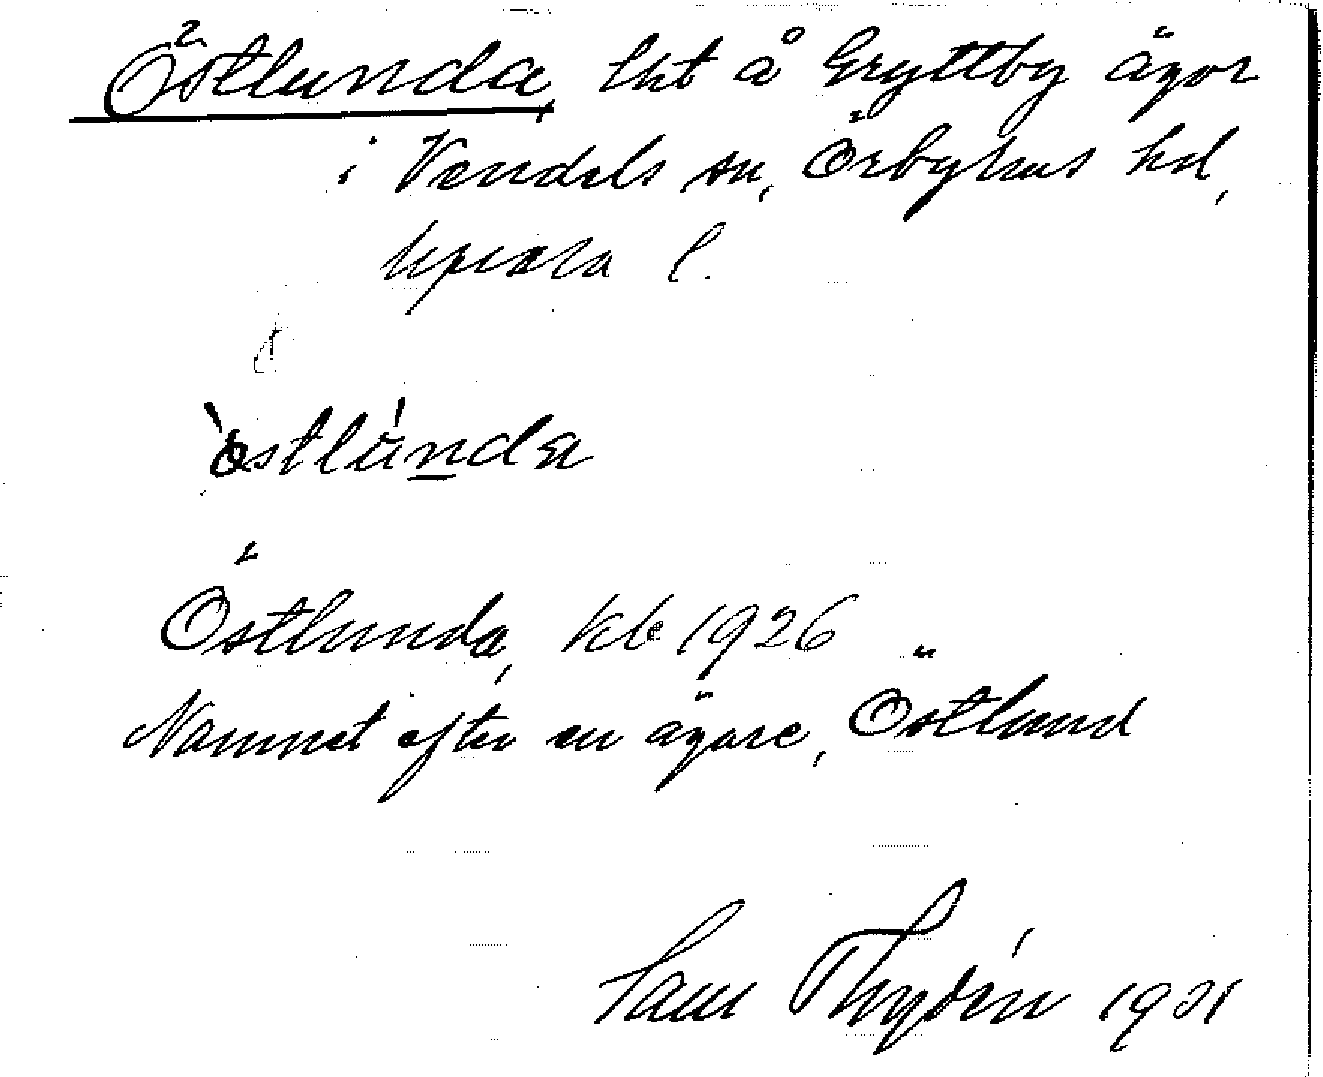 Östlunda, lht å Gryttby ägor
i Vendels sn, Örbyhus hd,
Upsala l.
òstlúnda
Östlunda, kbl 1926
Namnet efter en ägare, Östlund
Sam Thydén 1931